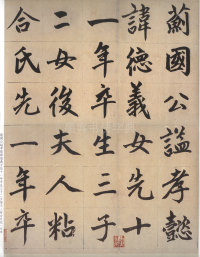 薊國公謚孝懿
諱德義女先十
一年卒生三子
二女後夫人粘
合氏先一年卒